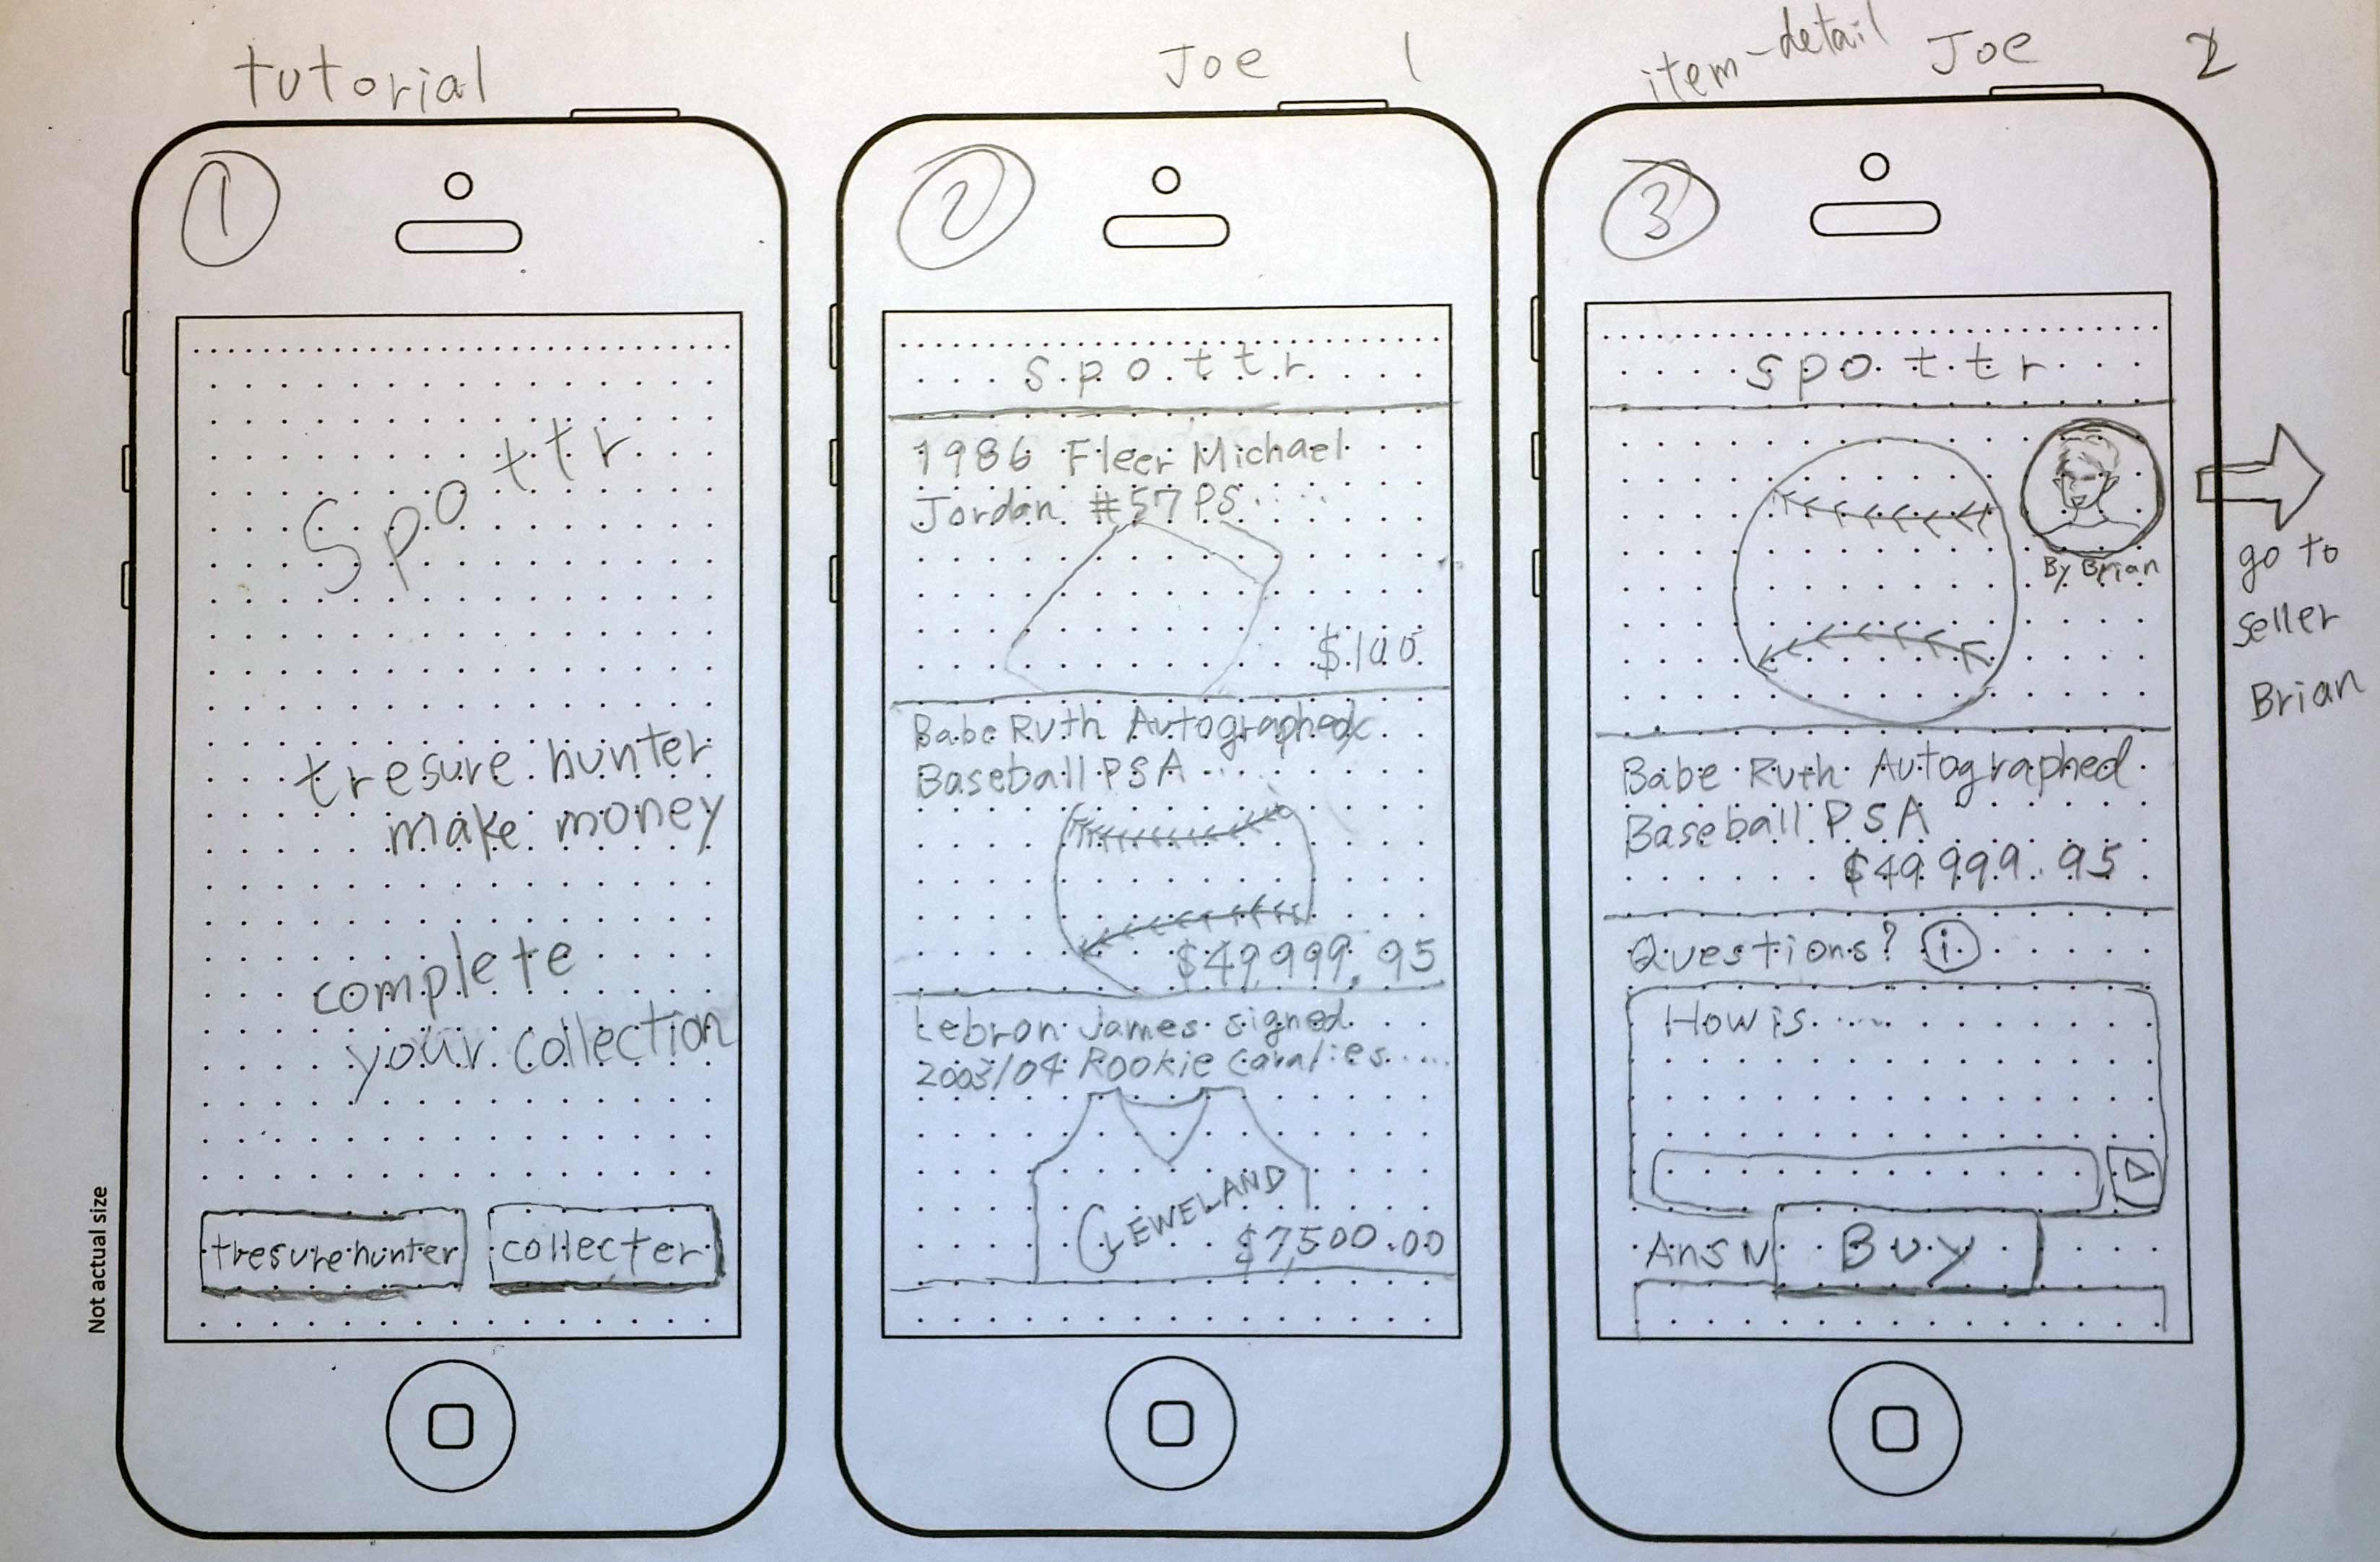 tutorial
1
Spottr
tresure hunter
make money
complete
your collection
tresure hunter
collecter
Not actual size
Joe 1
2
spottr
1986 Fleer Michael
Jordan #57 PS....
$100
Babe Ruth Autographed
Baseball PSA ...
$49,999.95
Lebron James signed
2003/04 Rookie Cavalies.....
CLEWELAND
$7,500.00
item-detail Joe 2
3
spottr
By Brian
go to
seller
Brian
Babe Ruth Autographed
Baseball PSA
$49999.95
Questions? i
How is.....
Answ
Buy